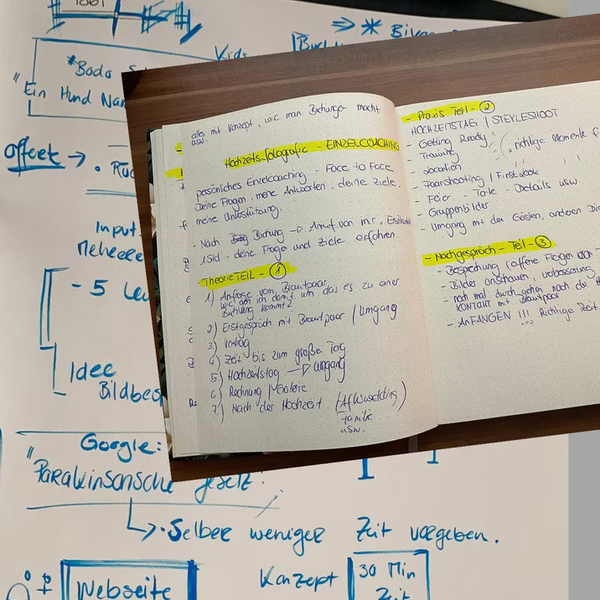 * Bodo
"Ein Hund
offeet →
Input
- 5
Idee
Google:
"Parakinsonsche Gesetz"!
→ · Selber weniger Zeit vorgeben.
Webseite
Konzept
30 Min
Zeit
alles mit Konzept, wie man Buchungen macht
usw.
Hochzeitsfotografie - EINZELCOACHING
persönliches Einzelcoaching - Face to Face
Deine Fragen, meine Antworten, deine Ziele.
meine Unterstützung.
- Nach Buchung → Anruf von mir,
deine Fragen und Ziele erfahren.
Theorie TEIL - 1
1) Anfrage vom Brautpaar
Buchung kommt?
2) Erstgespräch mit Brautpaar / Umgang
3) Vertrag
4) Zeit bis zum große Tag
5) Hochzeitstag → Umgang
6) Rechnung / Galerie
7) Nach der Hochzeit
usw.
- Praxis Teil - 2
HOCHZEITSTAG / STEYLESHOOT
- Getting Ready
- Trauung
richtige Momente
- Location
- Paarshooting / First look
- Feier - Torte - Details usw.
- Gruppenbilder
- Umgang mit den Gästen, anderen
- Nachgespräch - Teil - 3
- Besprechung (offene Fragen
- Bilder anschauen, verbesserung
- noch mal durch gehen
KONTAKT mit Brautpaar
- ANFANGEN !!! Richtige Zeit